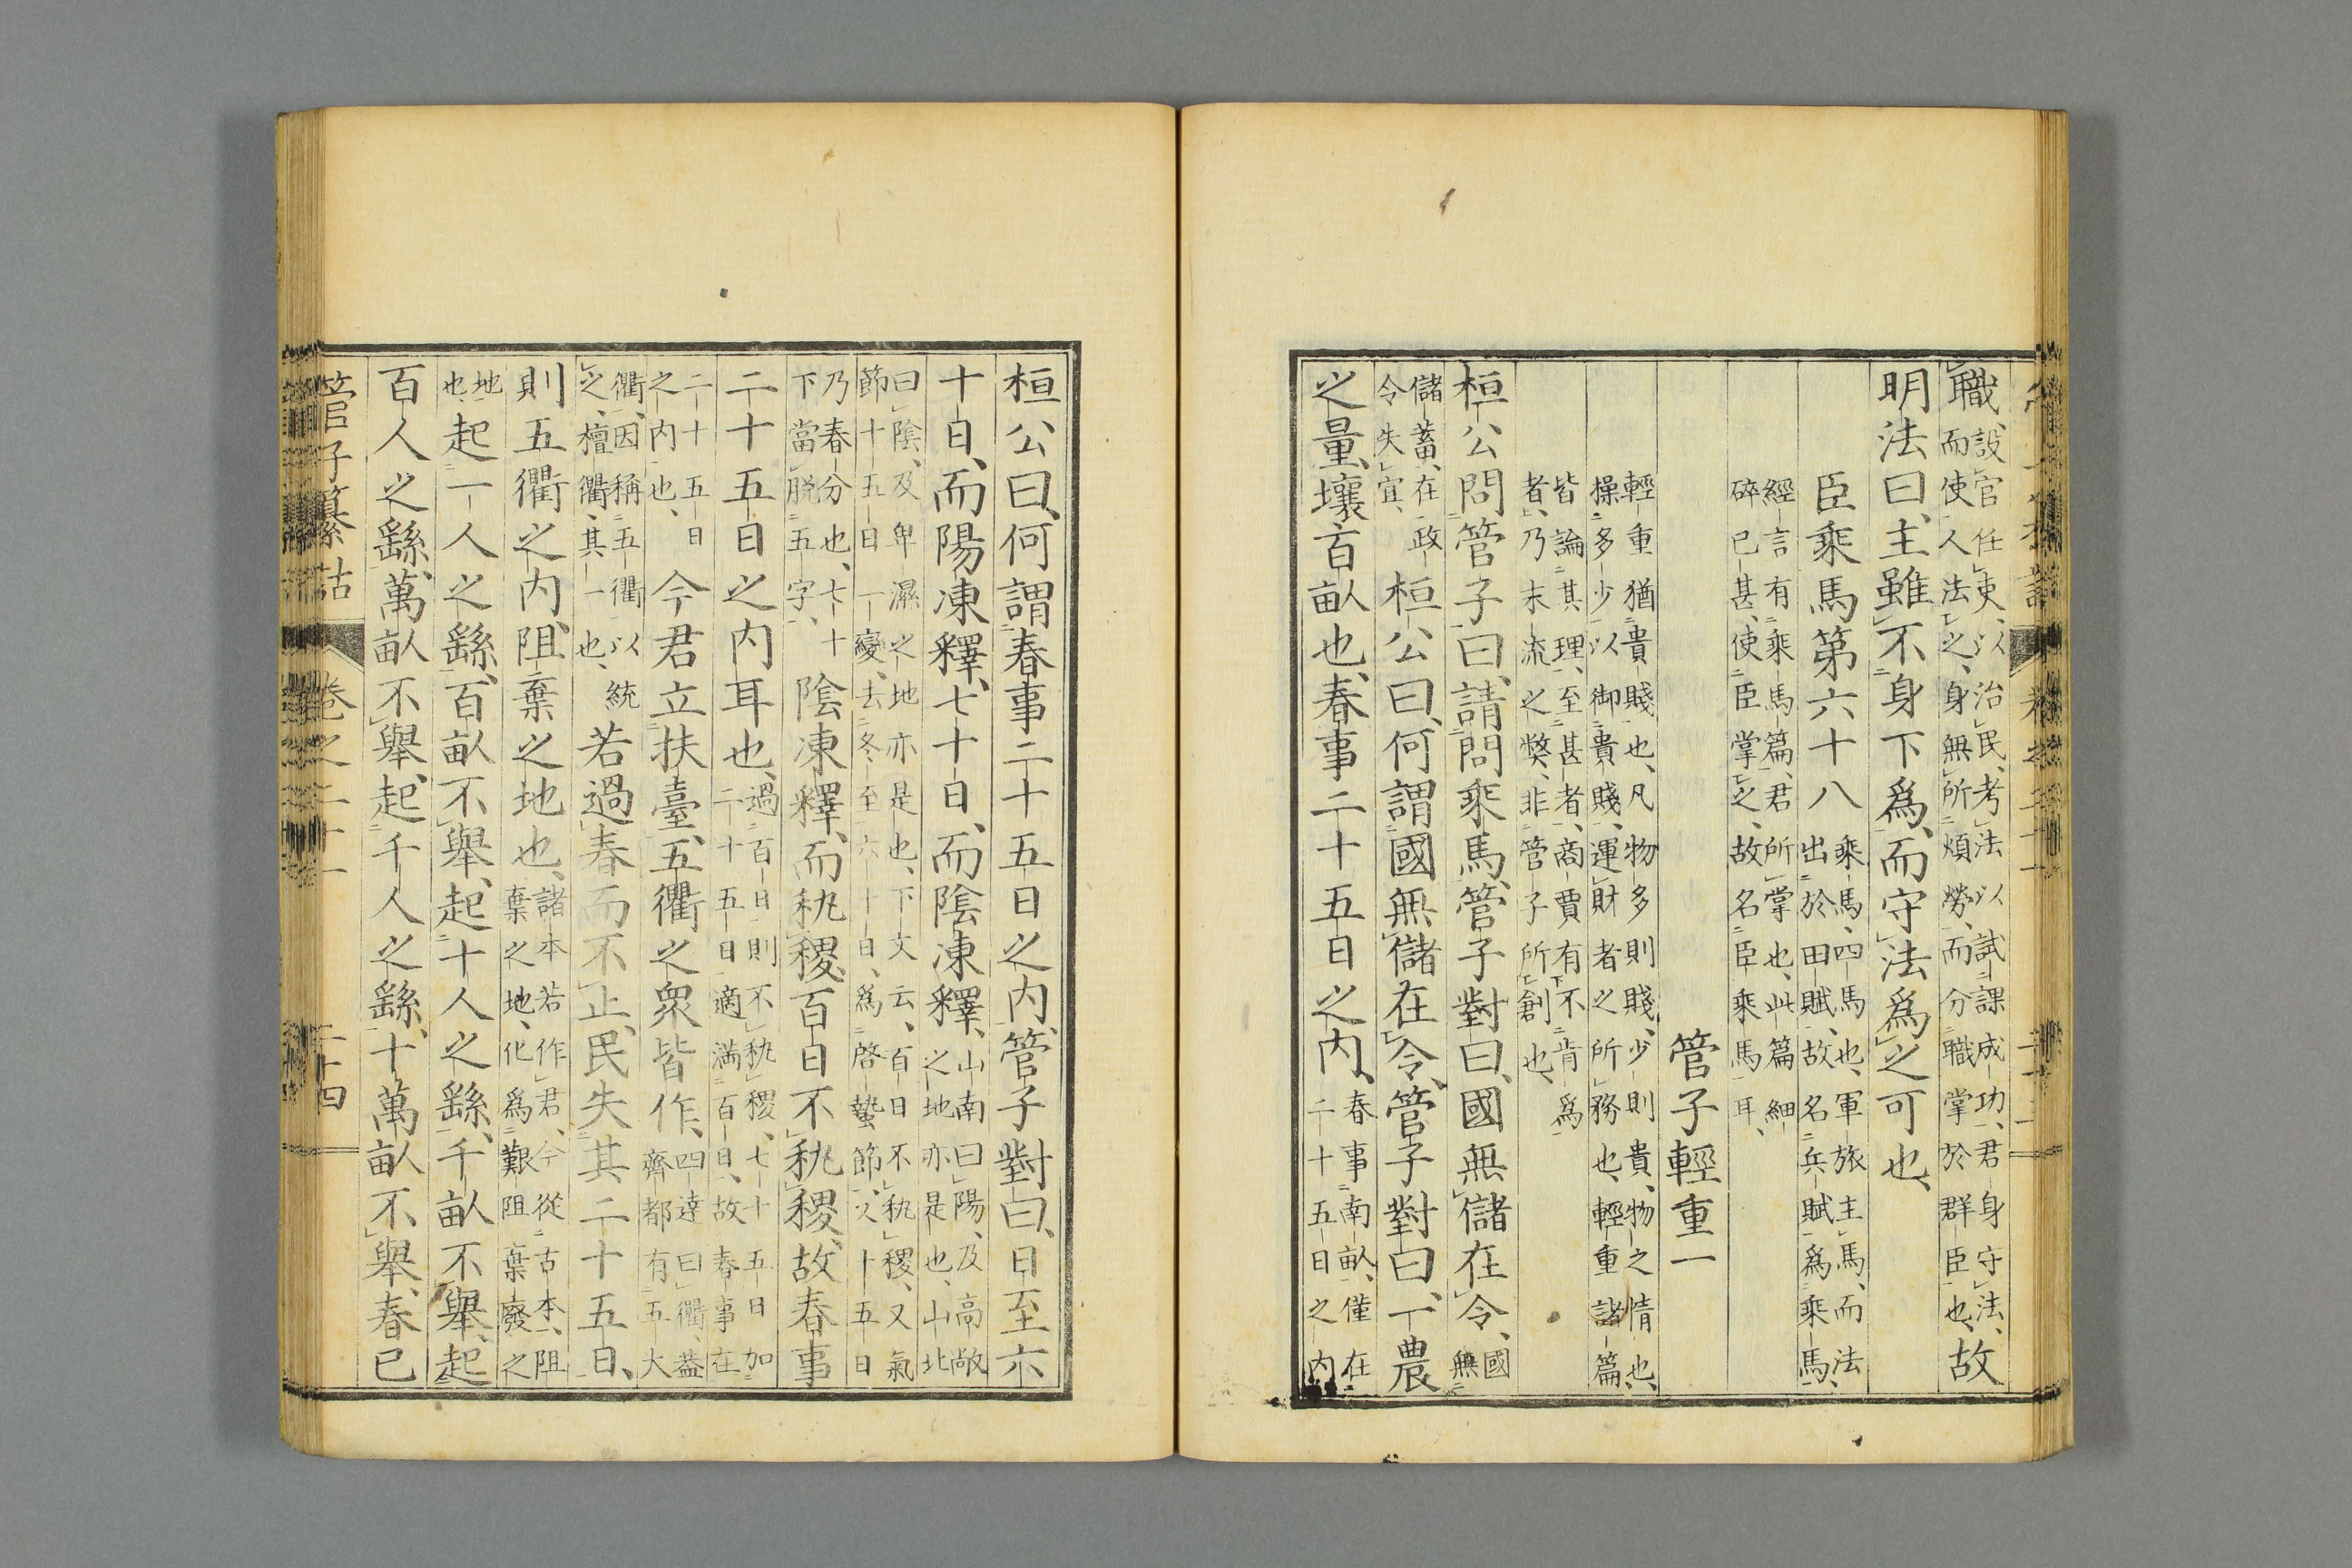 職、設官任吏、以治民、考法以試課成功、君身守法、而使人法之、身無所煩勞、而分職掌於群臣也、故
明法曰、主雖不身下爲、而守法爲之可也、
臣乘馬第六十八乘馬、四馬也、軍旅主馬、而法出於田賦、故名兵賦爲乘馬、
經言有乘馬篇、君所掌也、此篇細碎已甚、使臣掌之、故名臣乘馬耳、
管子輕重一
輕重猶貴賤也、凡物多則賤、少則貴、物之情也、操多少以御貴賤、運財者之所務也、輕重諸篇
皆論其理、至甚者、商賈有不肯爲者、乃末流之獘、非管子所創也、
桓公問管子曰、請問乘馬、管子對曰、國無儲在令、國無
儲蓄、在政令失宜、桓公曰、何謂國無儲在令、管子對曰、一農
之量、壤百畝也、春事二十五日之内、春事南畝、僅在二十五日之内
桓公曰、何謂春事二十五日之内、管子對曰、日至六
十日、而陽凍釋、七十日、而陰凍釋、山南曰陽、及高敞之地亦是也、山北
曰陰、及卑濕之地亦是也、下文云、百日不秇稷、又氣節十五日一變、去冬至六十日、爲啓蟄節、又十五日
乃春分也、七十下當脱五字、陰凍釋、而秇稷、百日不秇稷、故春事
二十五日之内耳也、過百日則不秇稷、七十五日加二十五日、適滿百日、故春事在
二十五日之内也、今君立扶臺、五衢之衆皆作、四達曰衢、蓋齊都有五大
衢、因稱五衢以統之、檀衢、其一也、若過春而不止、民失其二十五日、
則五衢之内、阻棄之地也、諸本若作君、今從古本、阻棄之地、化爲艱阻棄廢之
地也、起一人之繇、百畝不舉、起十人之繇、千畝不舉、起
百人之繇、萬畝不舉、起千人之繇、十萬畝不舉、春已
管子纂詁 卷之二十一 二十四